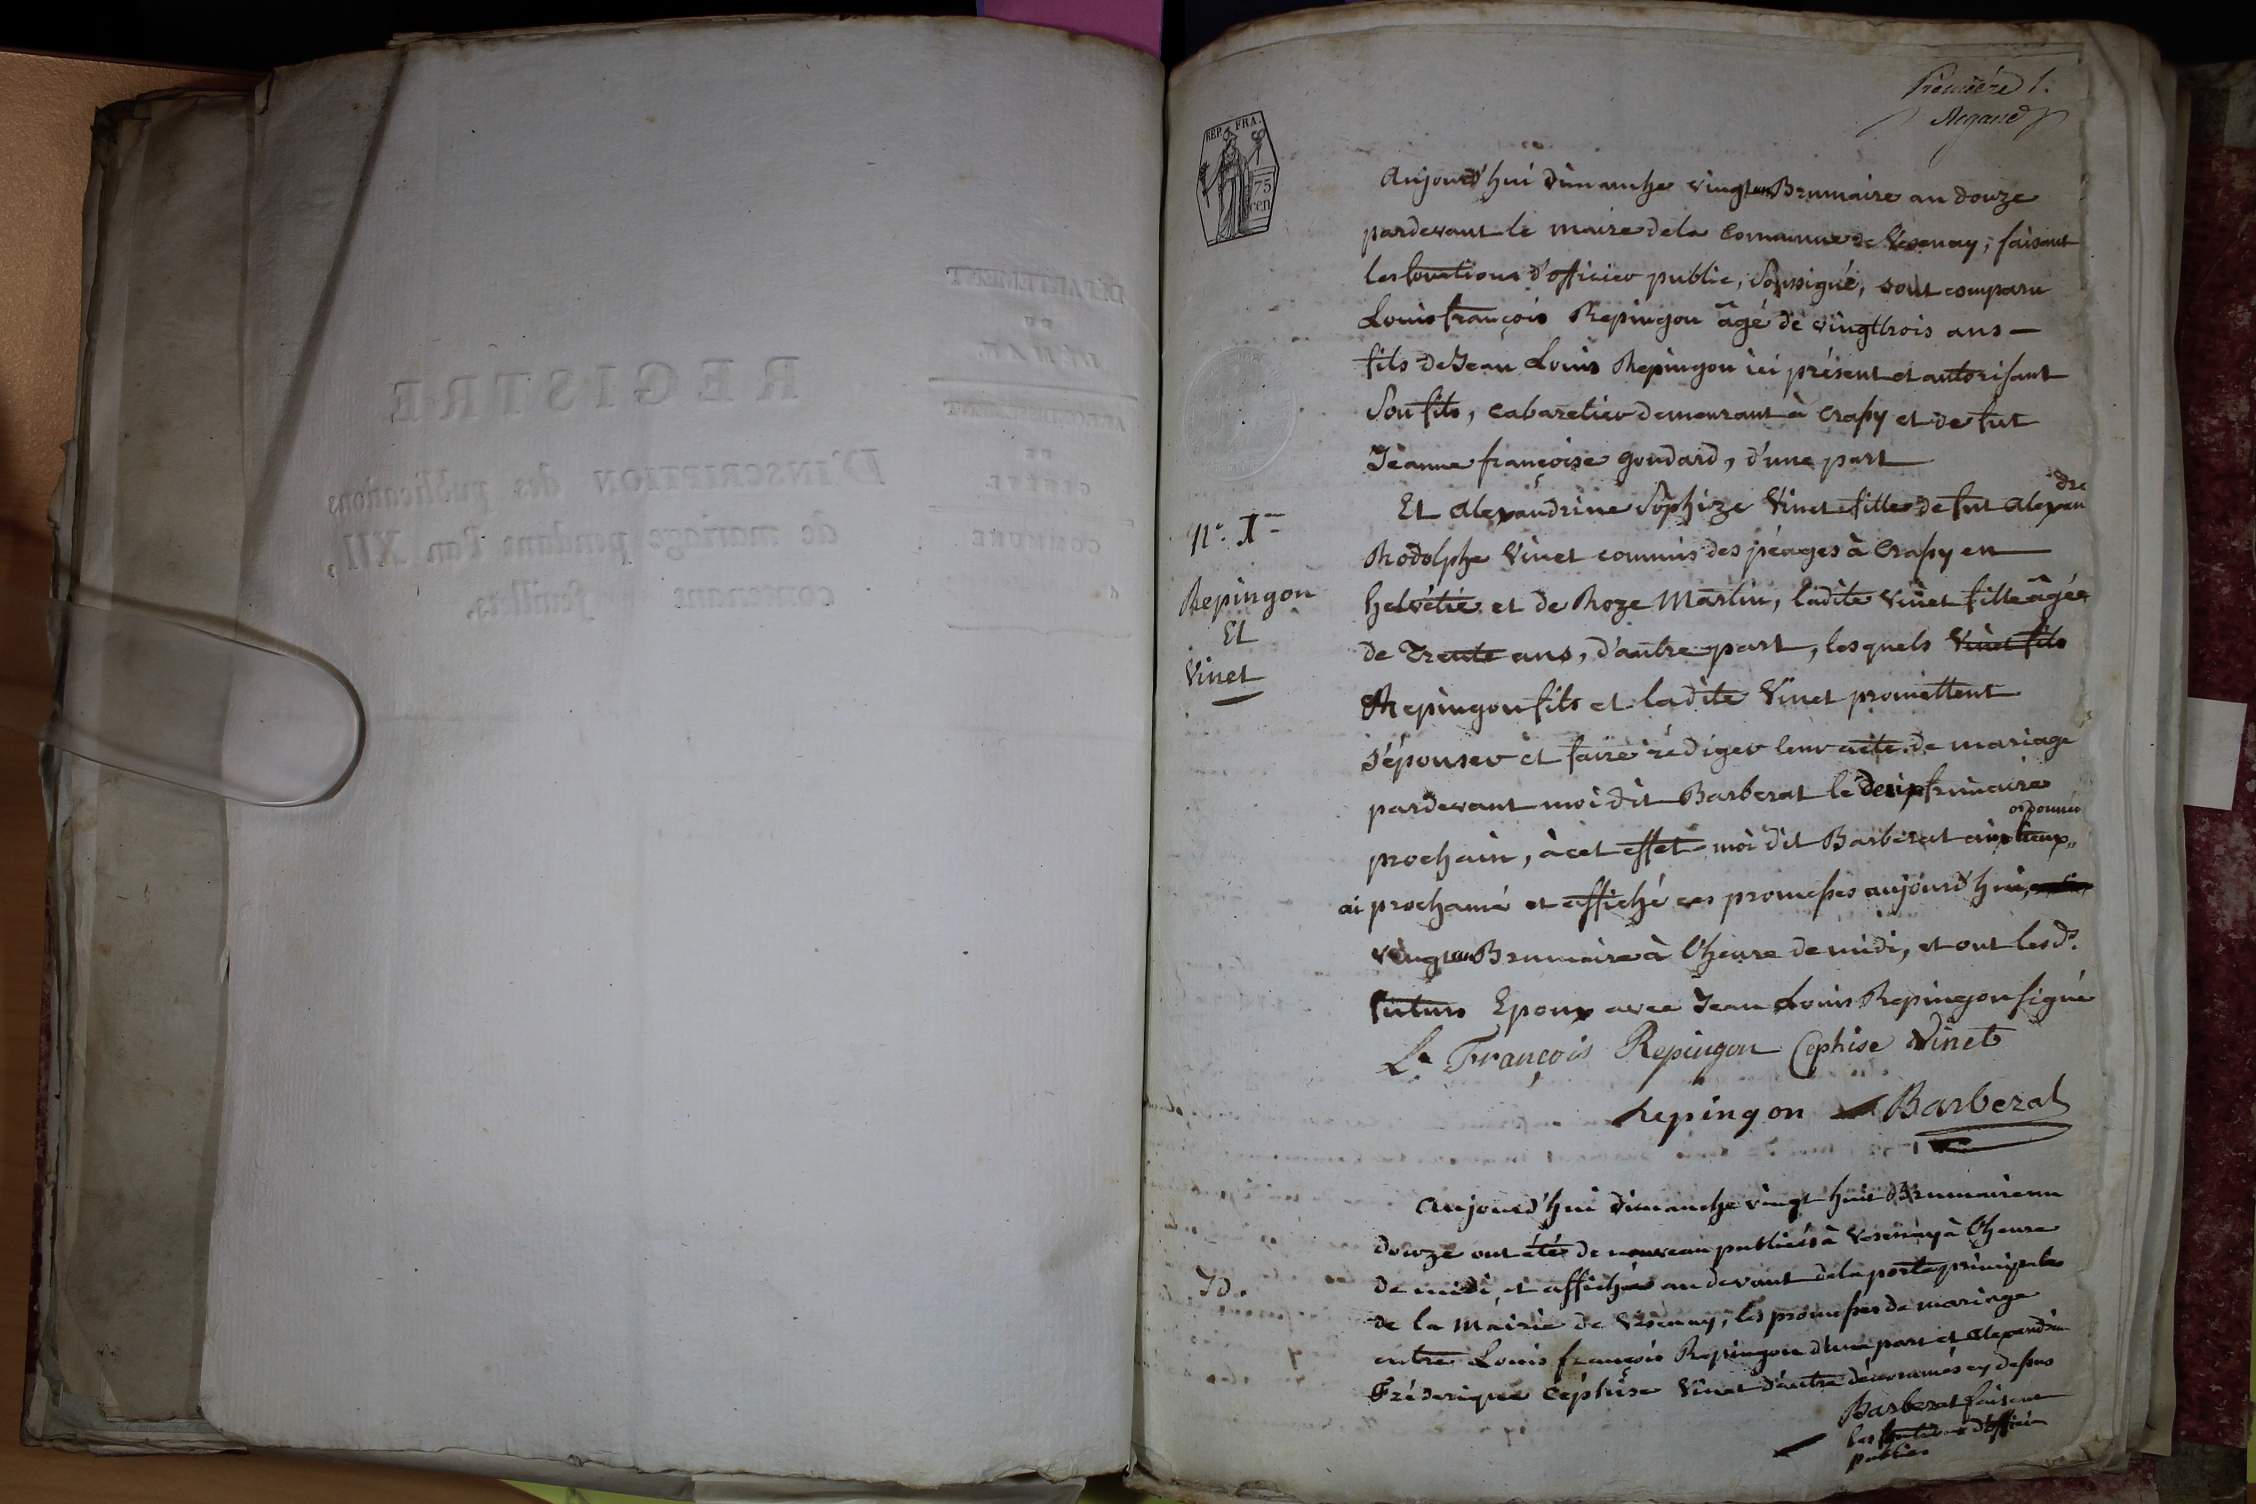 Premiére 1.
REP. FRA.
75
cen
Aujourd'hui dimanche vingt un Brumaire an douze
pardevant le maire de la Commune de Vesenay, faisant
les fonctions d'officier public, soussigné, sont comparu
Louis françois Repingon âgé de vingttrois ans —
fils de Jean Louis Repingon ici présent et autorisant
son fils, cabaretier demeurant à Crasy et de fut
Jeanne françoise Goudard, d'une part
Et Alexandrine Sophize Vinet fille de fut Alexandre
N°. 1er
Rodolphe Vinet commis des péages à Crasy en
Repingon
Et
Vinet
helvétie et de Roze Martin, ladite Vinet fille âgée
de Trente ans, d'autre part, lesquels Vinet fils
Repingon fils et ladite Vinet promettent
s'épouser et faire rédiger leur acte de mariage
pardevant moi dit Barberat le frimaire
prochain, à cet effet moi dit Barberat aux lieux ordonnés
ai proclamé et affiché ces promesses aujourd'hui,
vingt un Brumaire à l'heure de midi, et ont lesds.
futurs Epoux avec Jean Louis Repingon signé
Ls François Repingon Cephise Vinet
Repingon Barberat
Aujourd'hui dimanche vingt huit Brumaire an
douze ont étés de nouveau publiées à Vesenay à l'heure
Id.
de midi, et affichés au devant de la porte principale
de la Mairie de Vesenay, les promesses de mariage
entre Louis françois Repingon d'une part et Alexandrine
Fréderique Céphise Vinet d'autre dénommés cy dessus
Barberat faisant
les fonctions d'officier
public